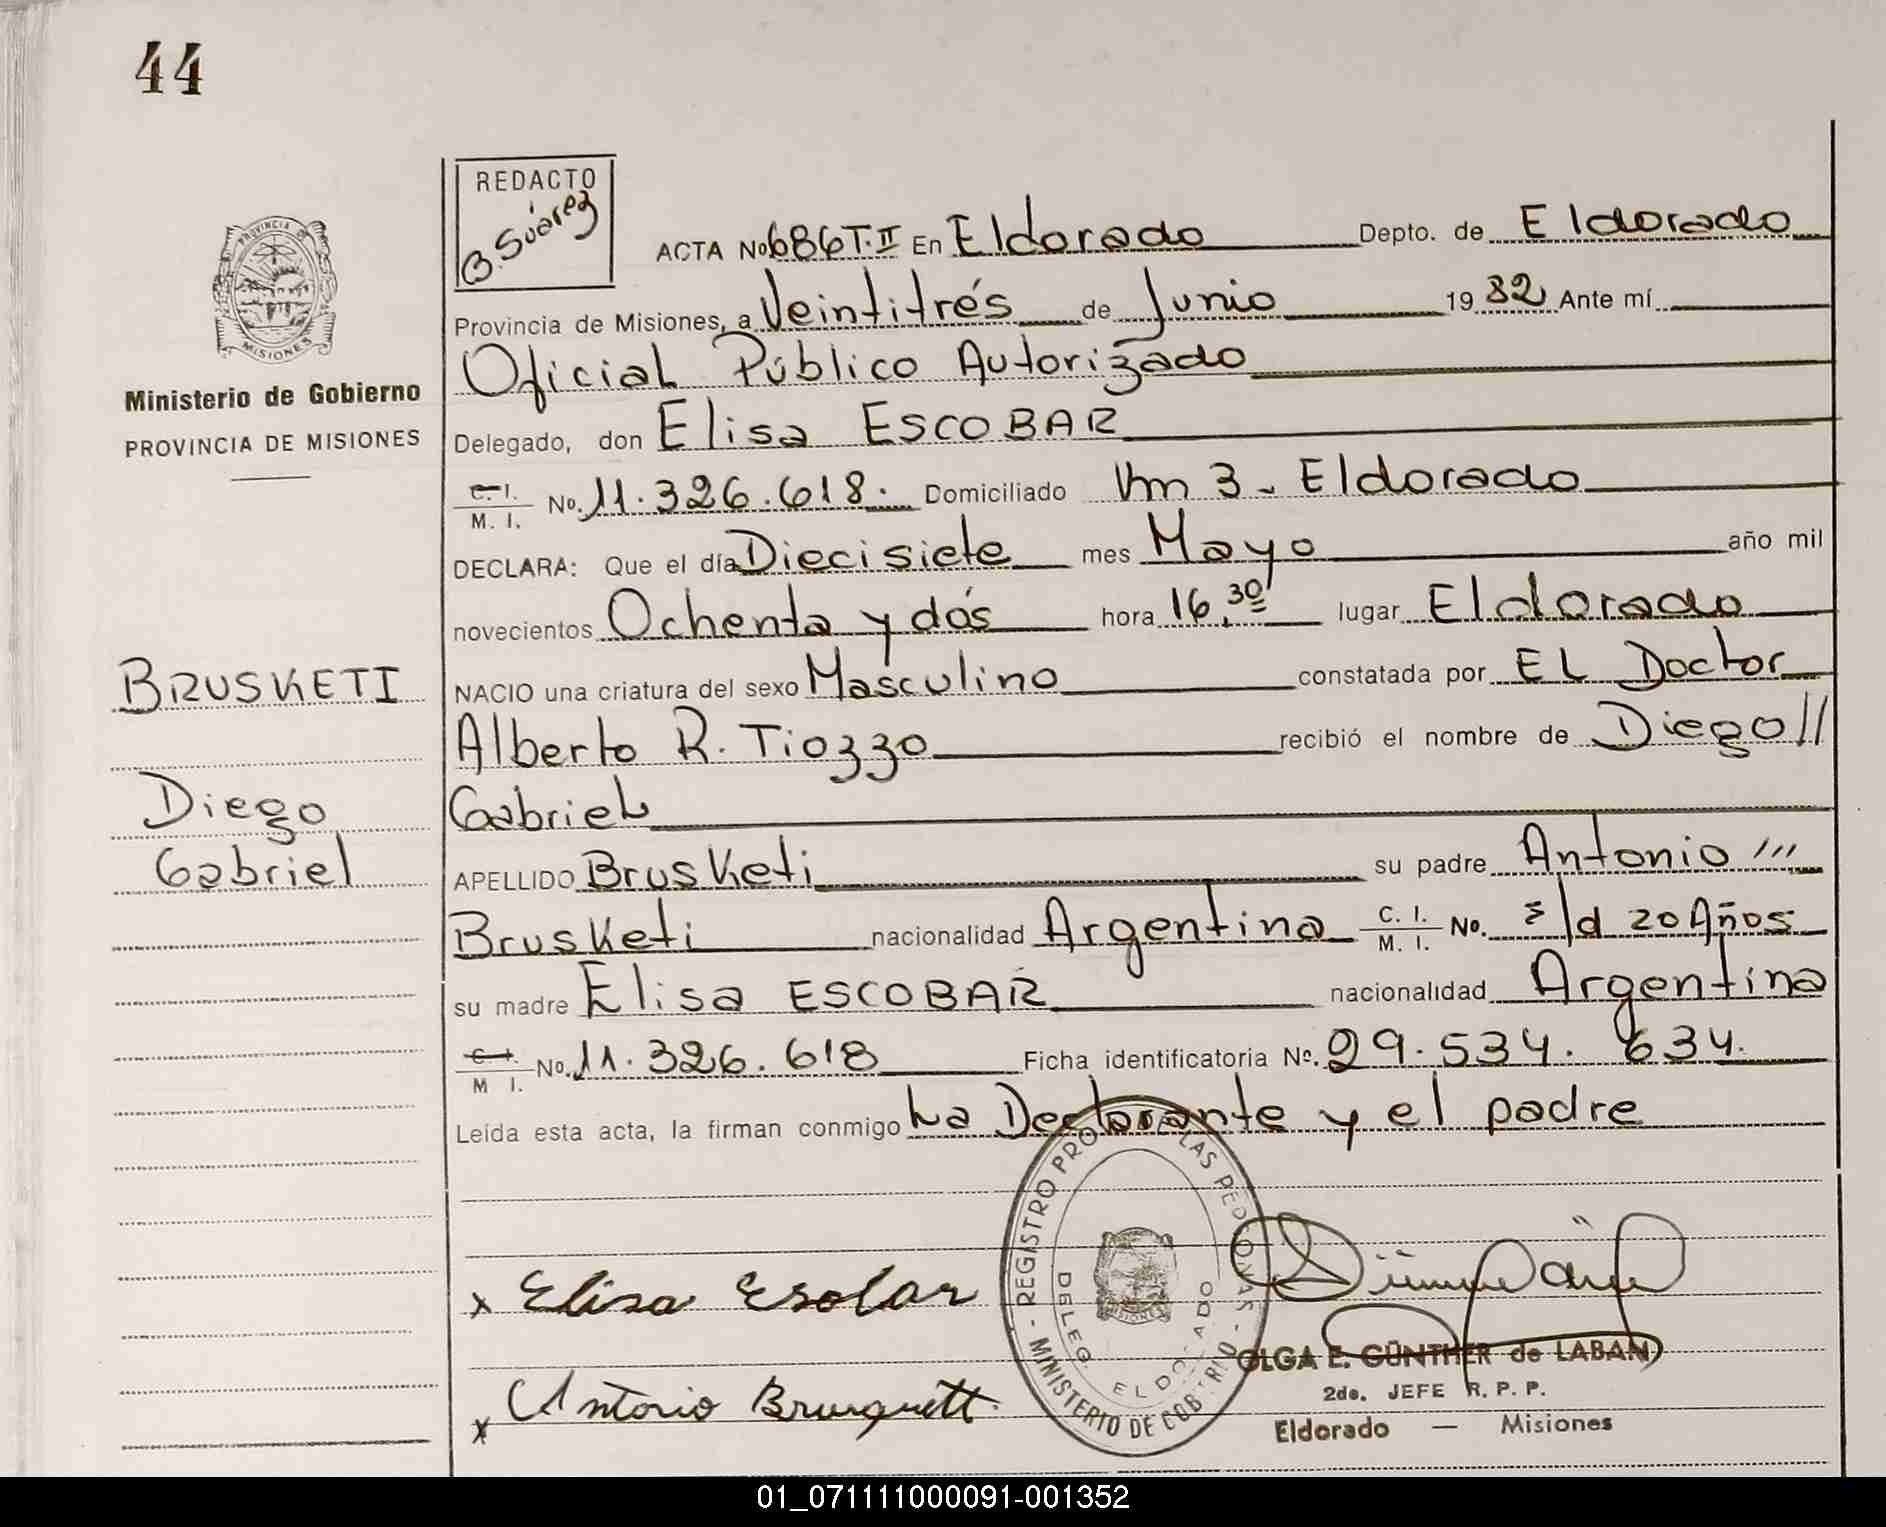 44
REDACTO
B. Suárez
PROVINCIA DE
MISIONES
Ministerio de Gobierno
PROVINCIA DE MISIONES
BRUSKETI
Diego
Gabriel
ACTA No 686 T.II En Eldorado Depto. de Eldorado
Provincia de Misiones, a Veintitrés de Junio 19 82 Ante mí
Oficial Público Autorizado
Delegado, don Elisa ESCOBAR
C. I. / M. I. No. 11.326.618. Domiciliado Km 3 - Eldorado
DECLARA: Que el día Diecisiete mes Mayo año mil
novecientos Ochenta y dós hora 16,30 lugar Eldorado
NACIO una criatura del sexo Masculino constatada por EL Doctor
Alberto R. Tiozzo recibió el nombre de Diego //
Gabriel
APELLIDO BrusKeti su padre Antonio ///
BrusKeti nacionalidad Argentina C. I. / M. I. No. /d 20 Años
su madre Elisa ESCOBAR nacionalidad Argentina
C. I. / M I. No. 11.326.618 Ficha identificatoria Nº. 29.534.634.
Leída esta acta, la firman conmigo La Declarante y el padre
x Elisa Esolar
x Antonio Brusquett
- REGISTRO PRO LAS PERSONAS - MINISTERIO DE GOB
DELEG ELDORADO
OLGA E. GÜNTHER de LABAN
2do. JEFE R. P. P.
Eldorado — Misiones
01_071111000091-001352